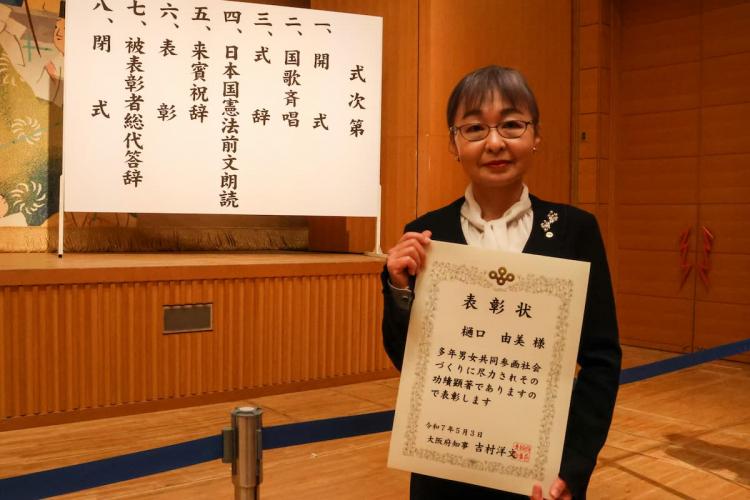 式次第
一、開式
二、国歌斉唱
三、式辞
四、日本国憲法前文朗読
五、来賓祝辞
六、表彰
七、被表彰者総代答辞
八、閉式
表彰状
樋口 由美 様
多年男女共同参画社会
づくりに尽力されその
功績顕著でありますの
で表彰します
令和7年5月3日
大阪府知事 吉村洋文